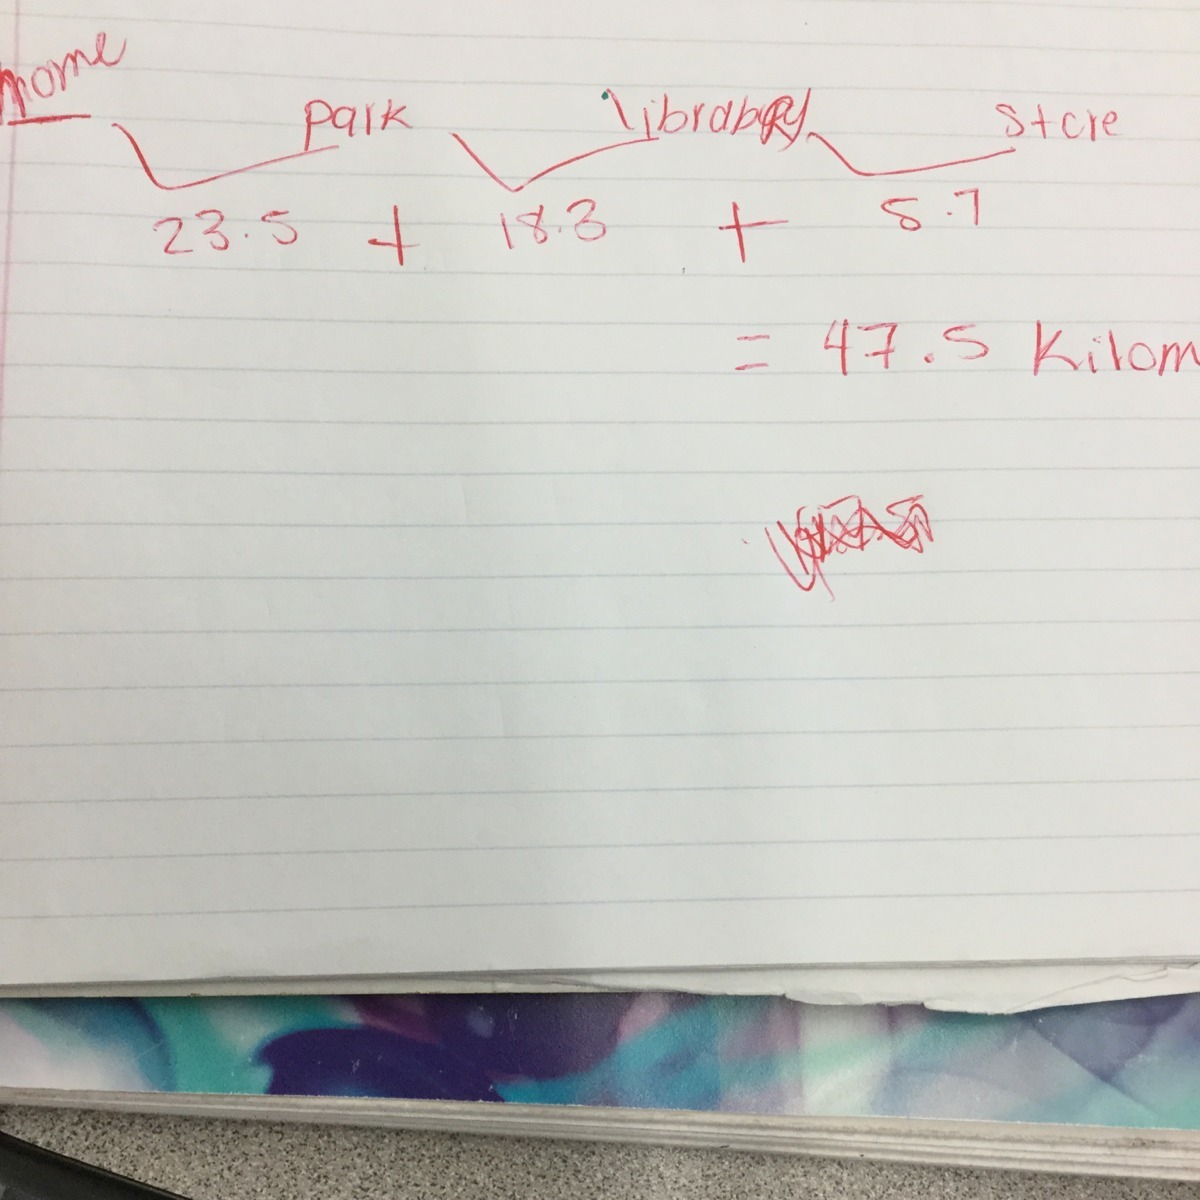 home park library store
23.5 + 18.3 + 5.7
= 47.5 Kilom